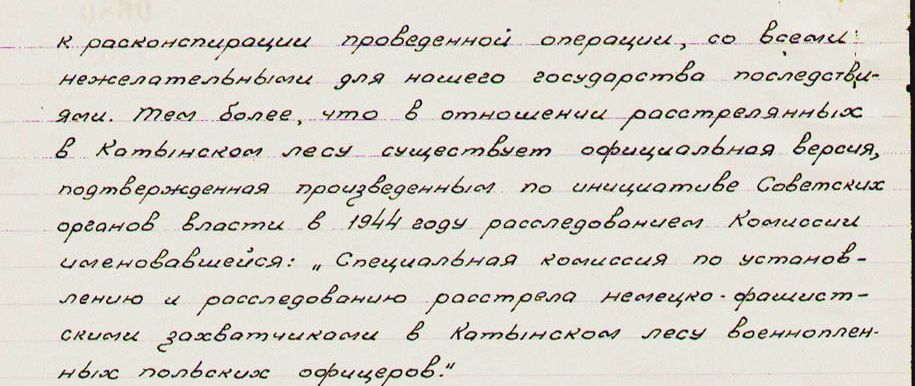 к расконспирации проведенной операции, со всеми
нежелательными для нашего государства последстви-
ями. Тем более, что в отношении расстрелянных
в Катынском лесу существует официальная версия,
подтвержденная произведенным по инициативе Советских
органов власти в 1944 году расследованием Комиссии
именовавшейся: „Специальная комиссия по установ-
лению и расследованию расстрела немецко-фашист-
скими захватчиками в Катынском лесу военноплен-
ных польских офицеров."